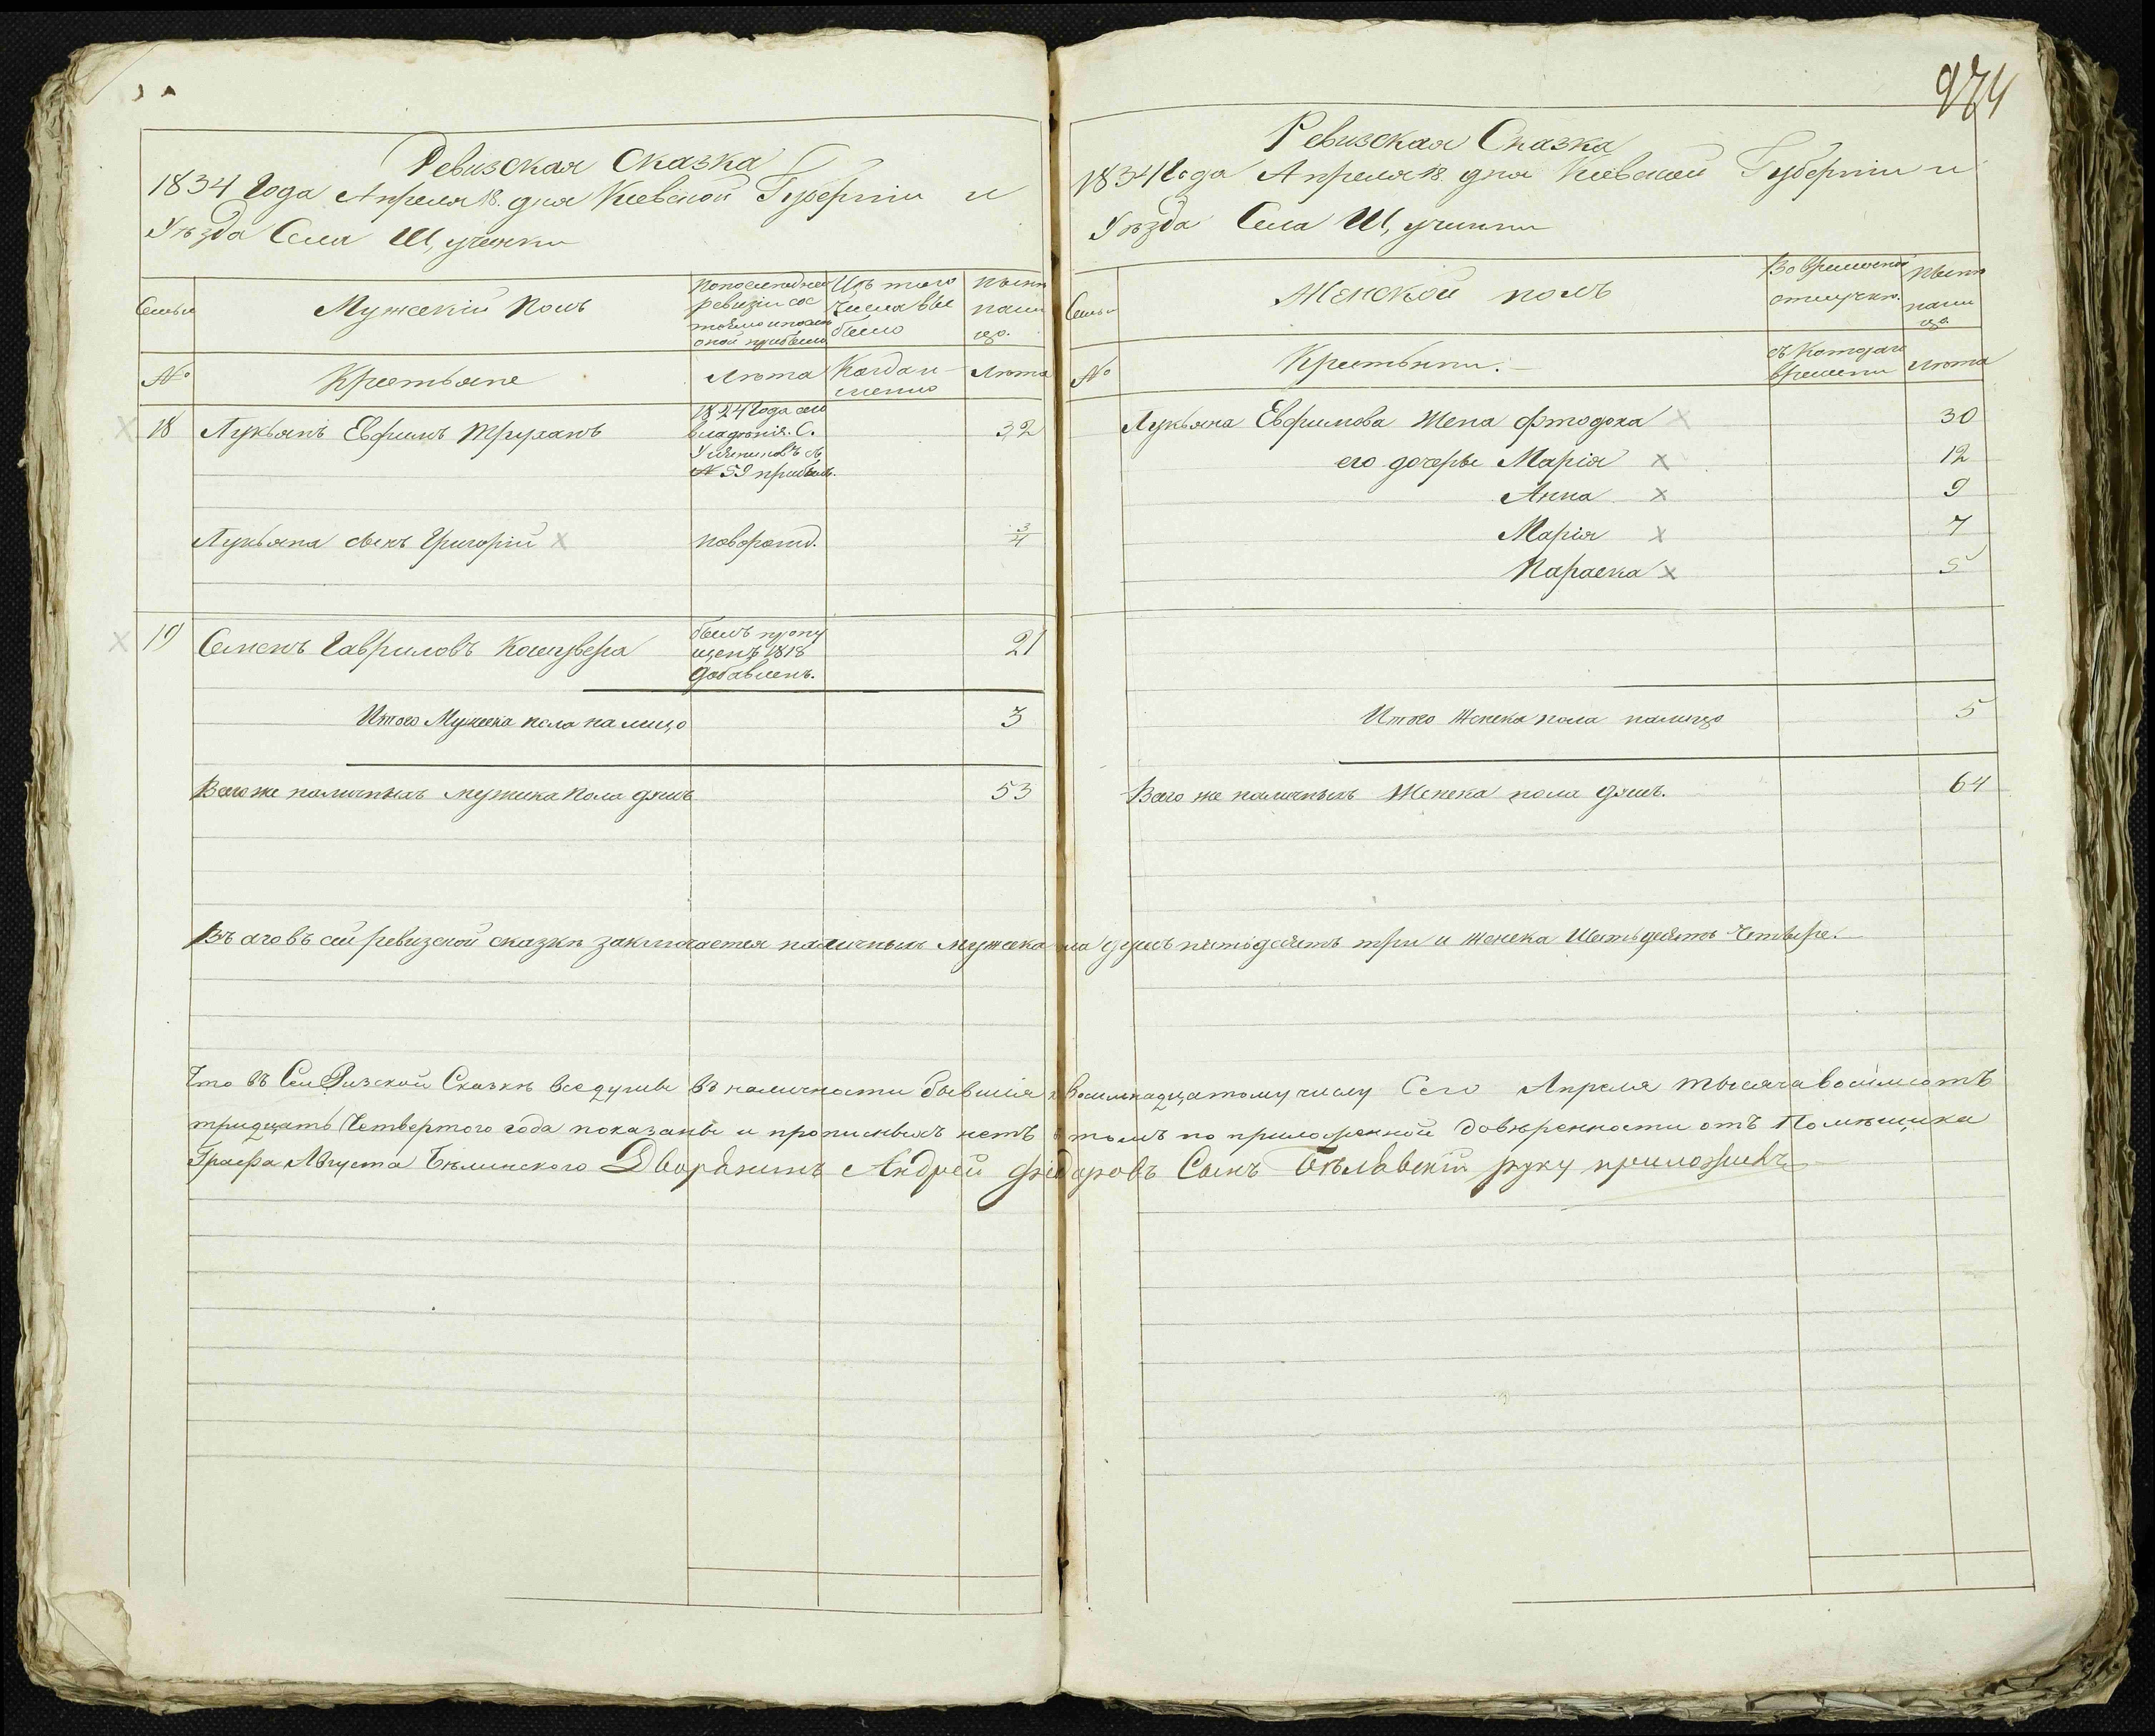 974
Ревизская Сказка
1834 Года Апреля 18. дня Киевской Губернии и
Уезда Села Щ,учинки
Семьи
Мужеский Полъ
По последней
ревизіи сос
тояло и после
оной прибыло
Изъ того
числа вы
было
ныне
нали
цо.
№
Крестьяне
Лета
Когда и
менно
Лета
18
Лукьянъ Евфимъ Труханъ
1824 Года сего
владенія. С.
№ 59 прибылъ.
32
Лукьяна сынъ Григорій
новорожд.
3/4
19
Семенъ Гавриловъ
былъ пропу
щенъ 1818
добавленъ.
21
Итого Мужеска пола налицо
3
Всего же наличныхъ мужеска пола душъ
53
Ревизская Сказка
1834 Года Апреля 18. дня Киевской Губернии и
Уезда Села Щ,учинки
Семьи
Женской полъ
Во временной
отлучке.
ныне
нали
цо.
№
Крестьяне.
съ Котораго
времени
Лета
Лукьяна Евфимова Жена Фтодора
30
его дочеры Марія
12
Анна
9
Марія
7
Параска
5
Итого Женска пола налицо
5
Всего же наличныхъ Женска пола душъ.
64
Въ сего въ сей ревизской сказке заключается наличныхъ мужеска пола душъ пятдесятъ три и женска Шестьдесятъ Четыре.
Что въ Сей Ризской Сказке все душы въ наличности бывшія к Восимнадцатому числу Сего Апреля тысяча восимсотъ
тридцать Четвертого года показаны и прописныхъ нетъ в томъ по приложенной доверенности отъ Помещика
Графа Августа Белинского Дворянинъ Андрей Федоровъ Сынъ Белавскій руку приложилъ